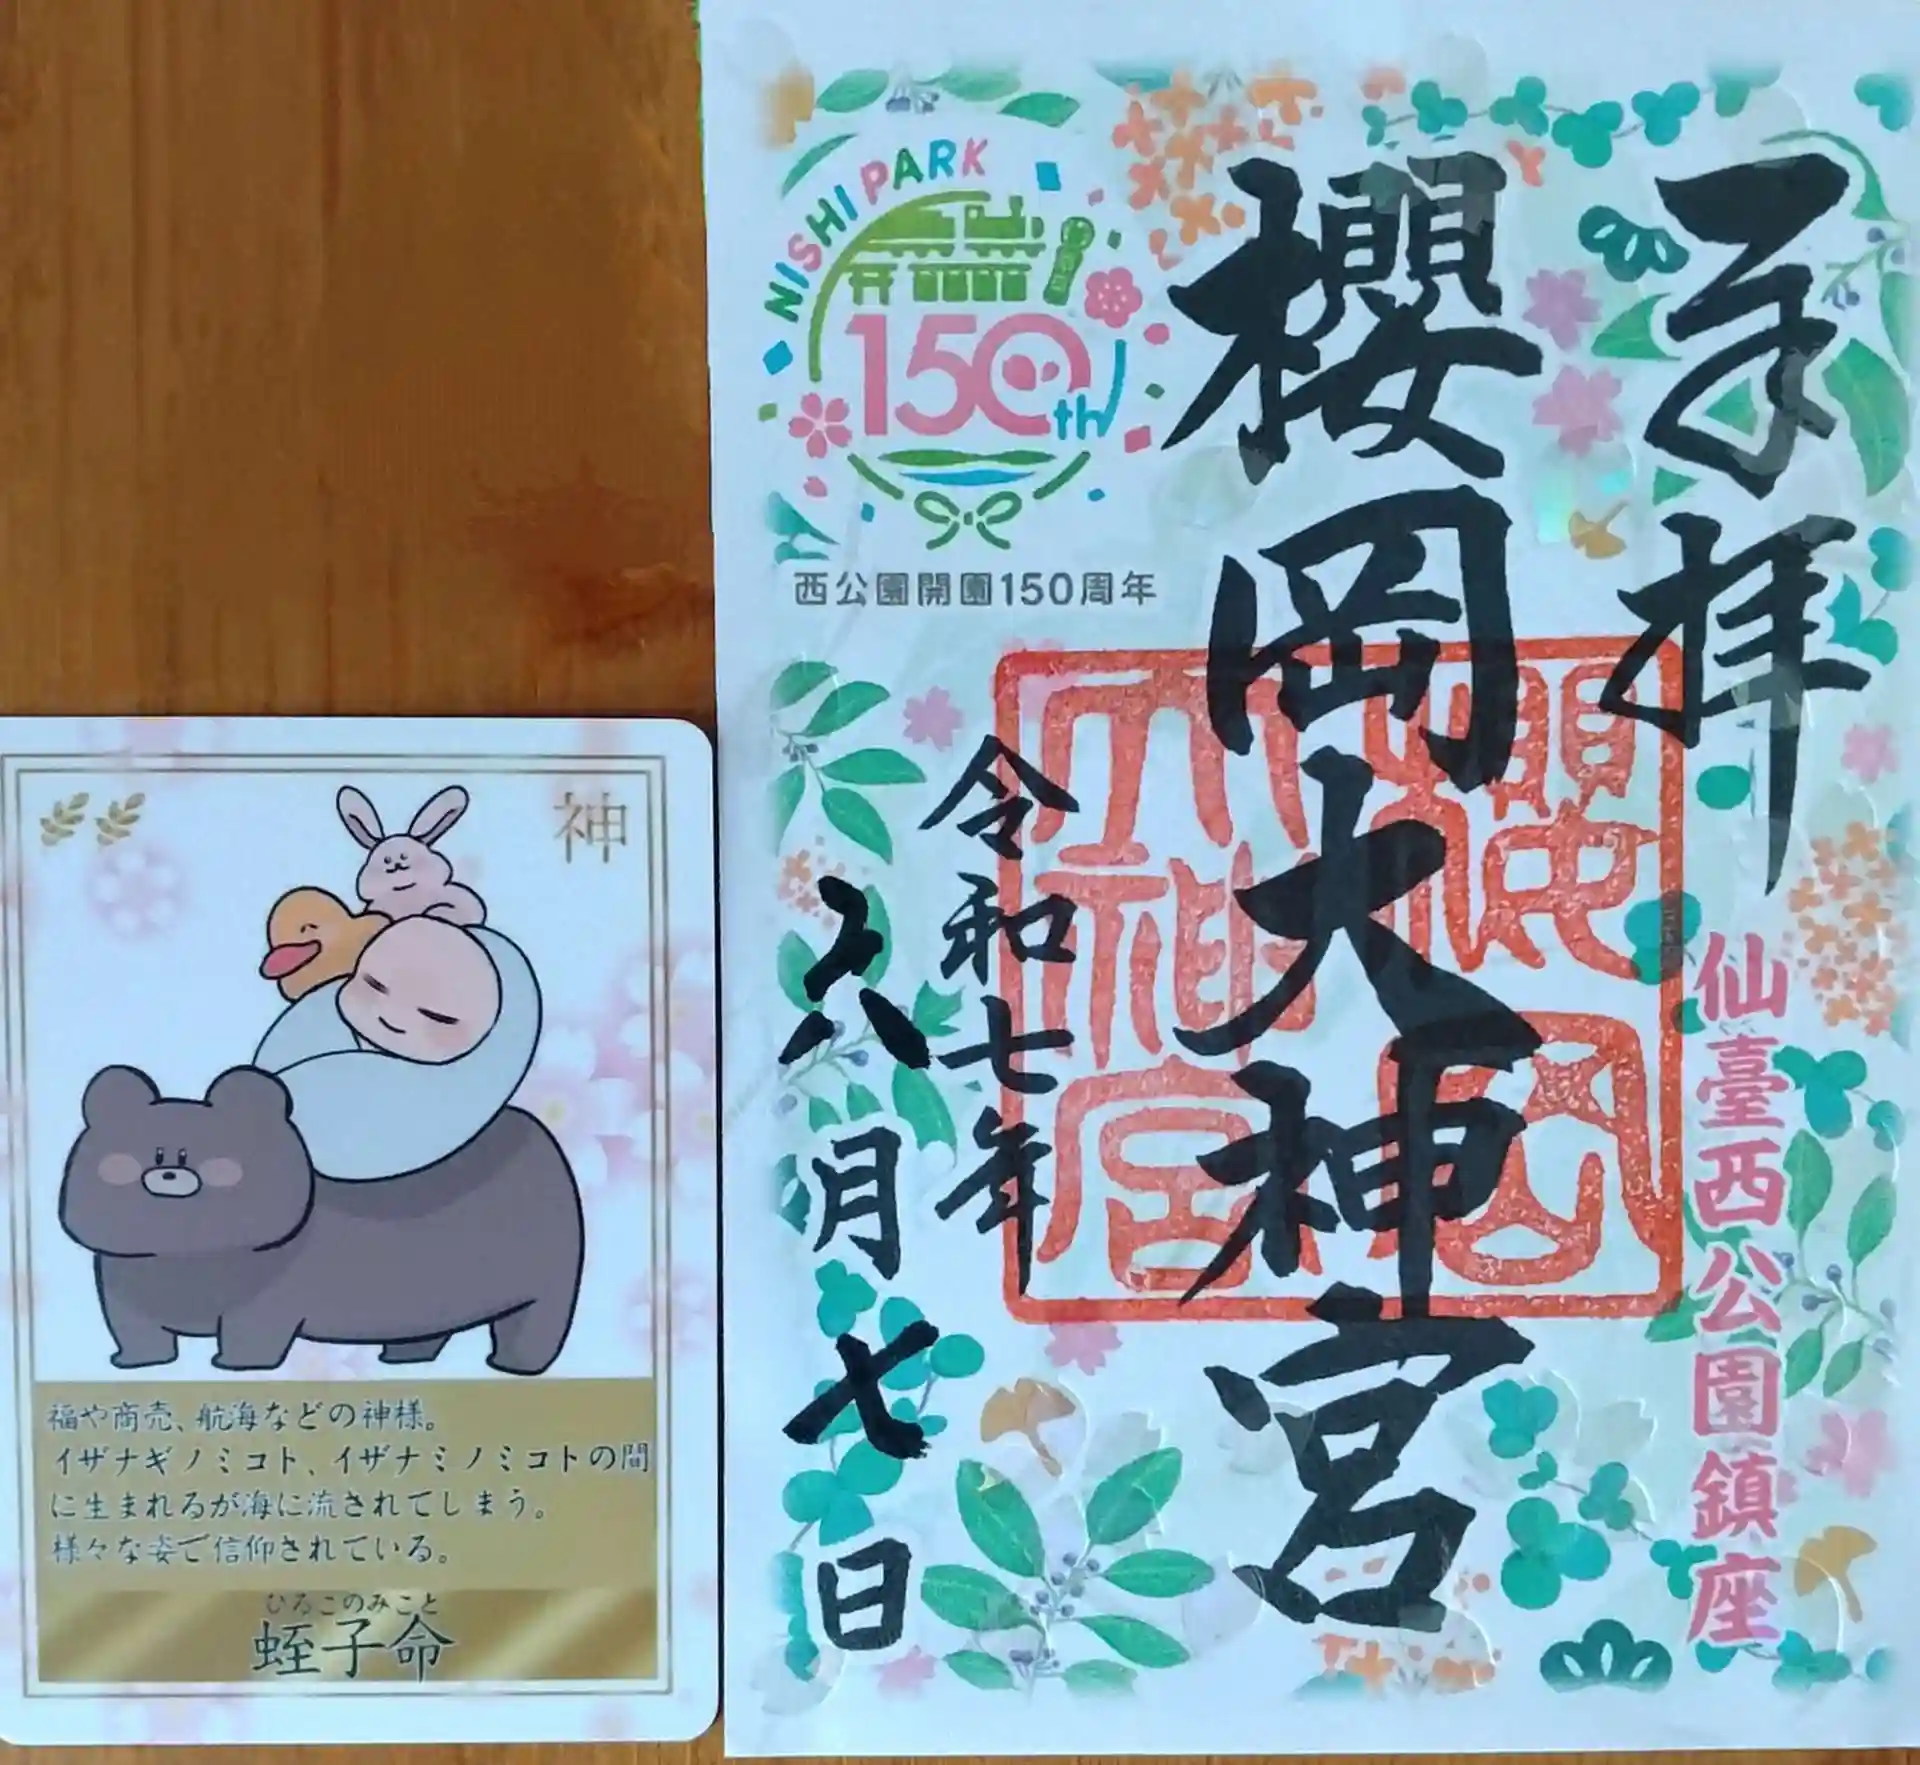 神
福や商売、航海などの神様。
イザナギノミコト、イザナミノミコトの間
に生まれるが海に流されてしまう。
様々な姿で信仰されている。
ひるこのみこと
蛭子命
奉拝
仙臺西公園鎮座
櫻岡大神宮
櫻岡大神宮
令和七年
六月七日
NISHI PARK
150th
西公園開園150周年